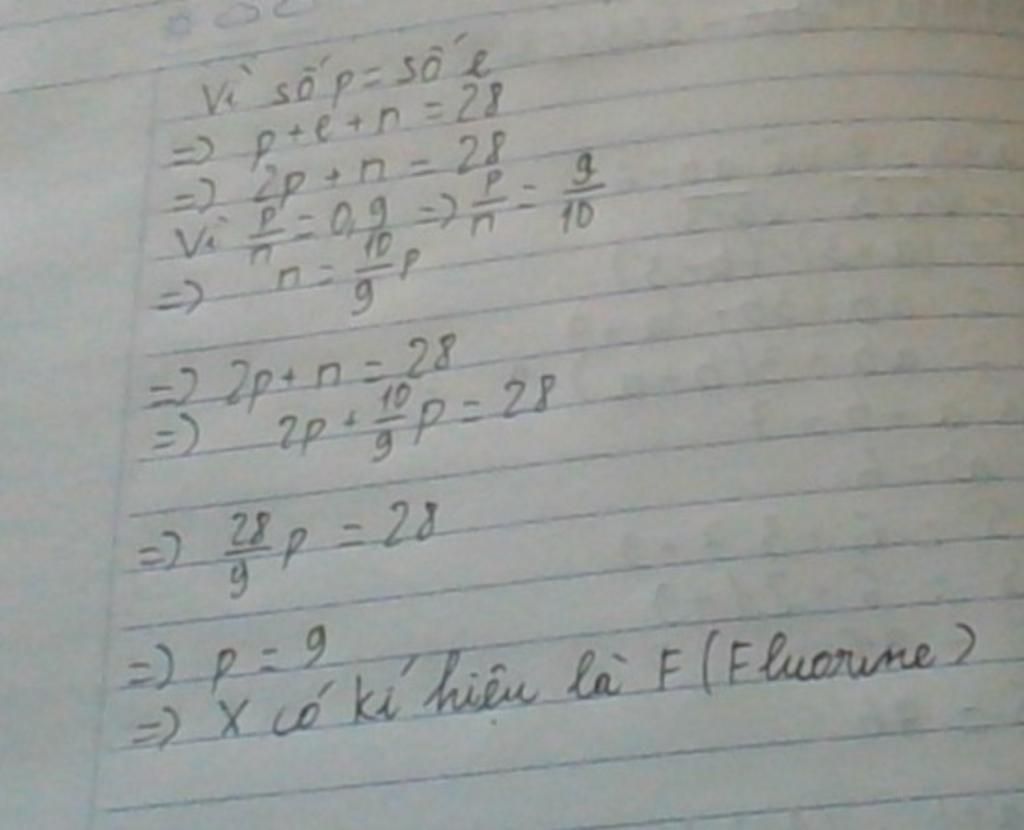 Vì số p = số e
=> p + e + n = 28
=> 2p + n = 28
Vì p/n = 0,9 => p/n = 9/10
=> n = 10/9 p
=> 2p + n = 28
=> 2p + 10/9 p = 28
=> 28/9 p = 28
=> p = 9
=> X có kí hiệu là F (Fluorine)